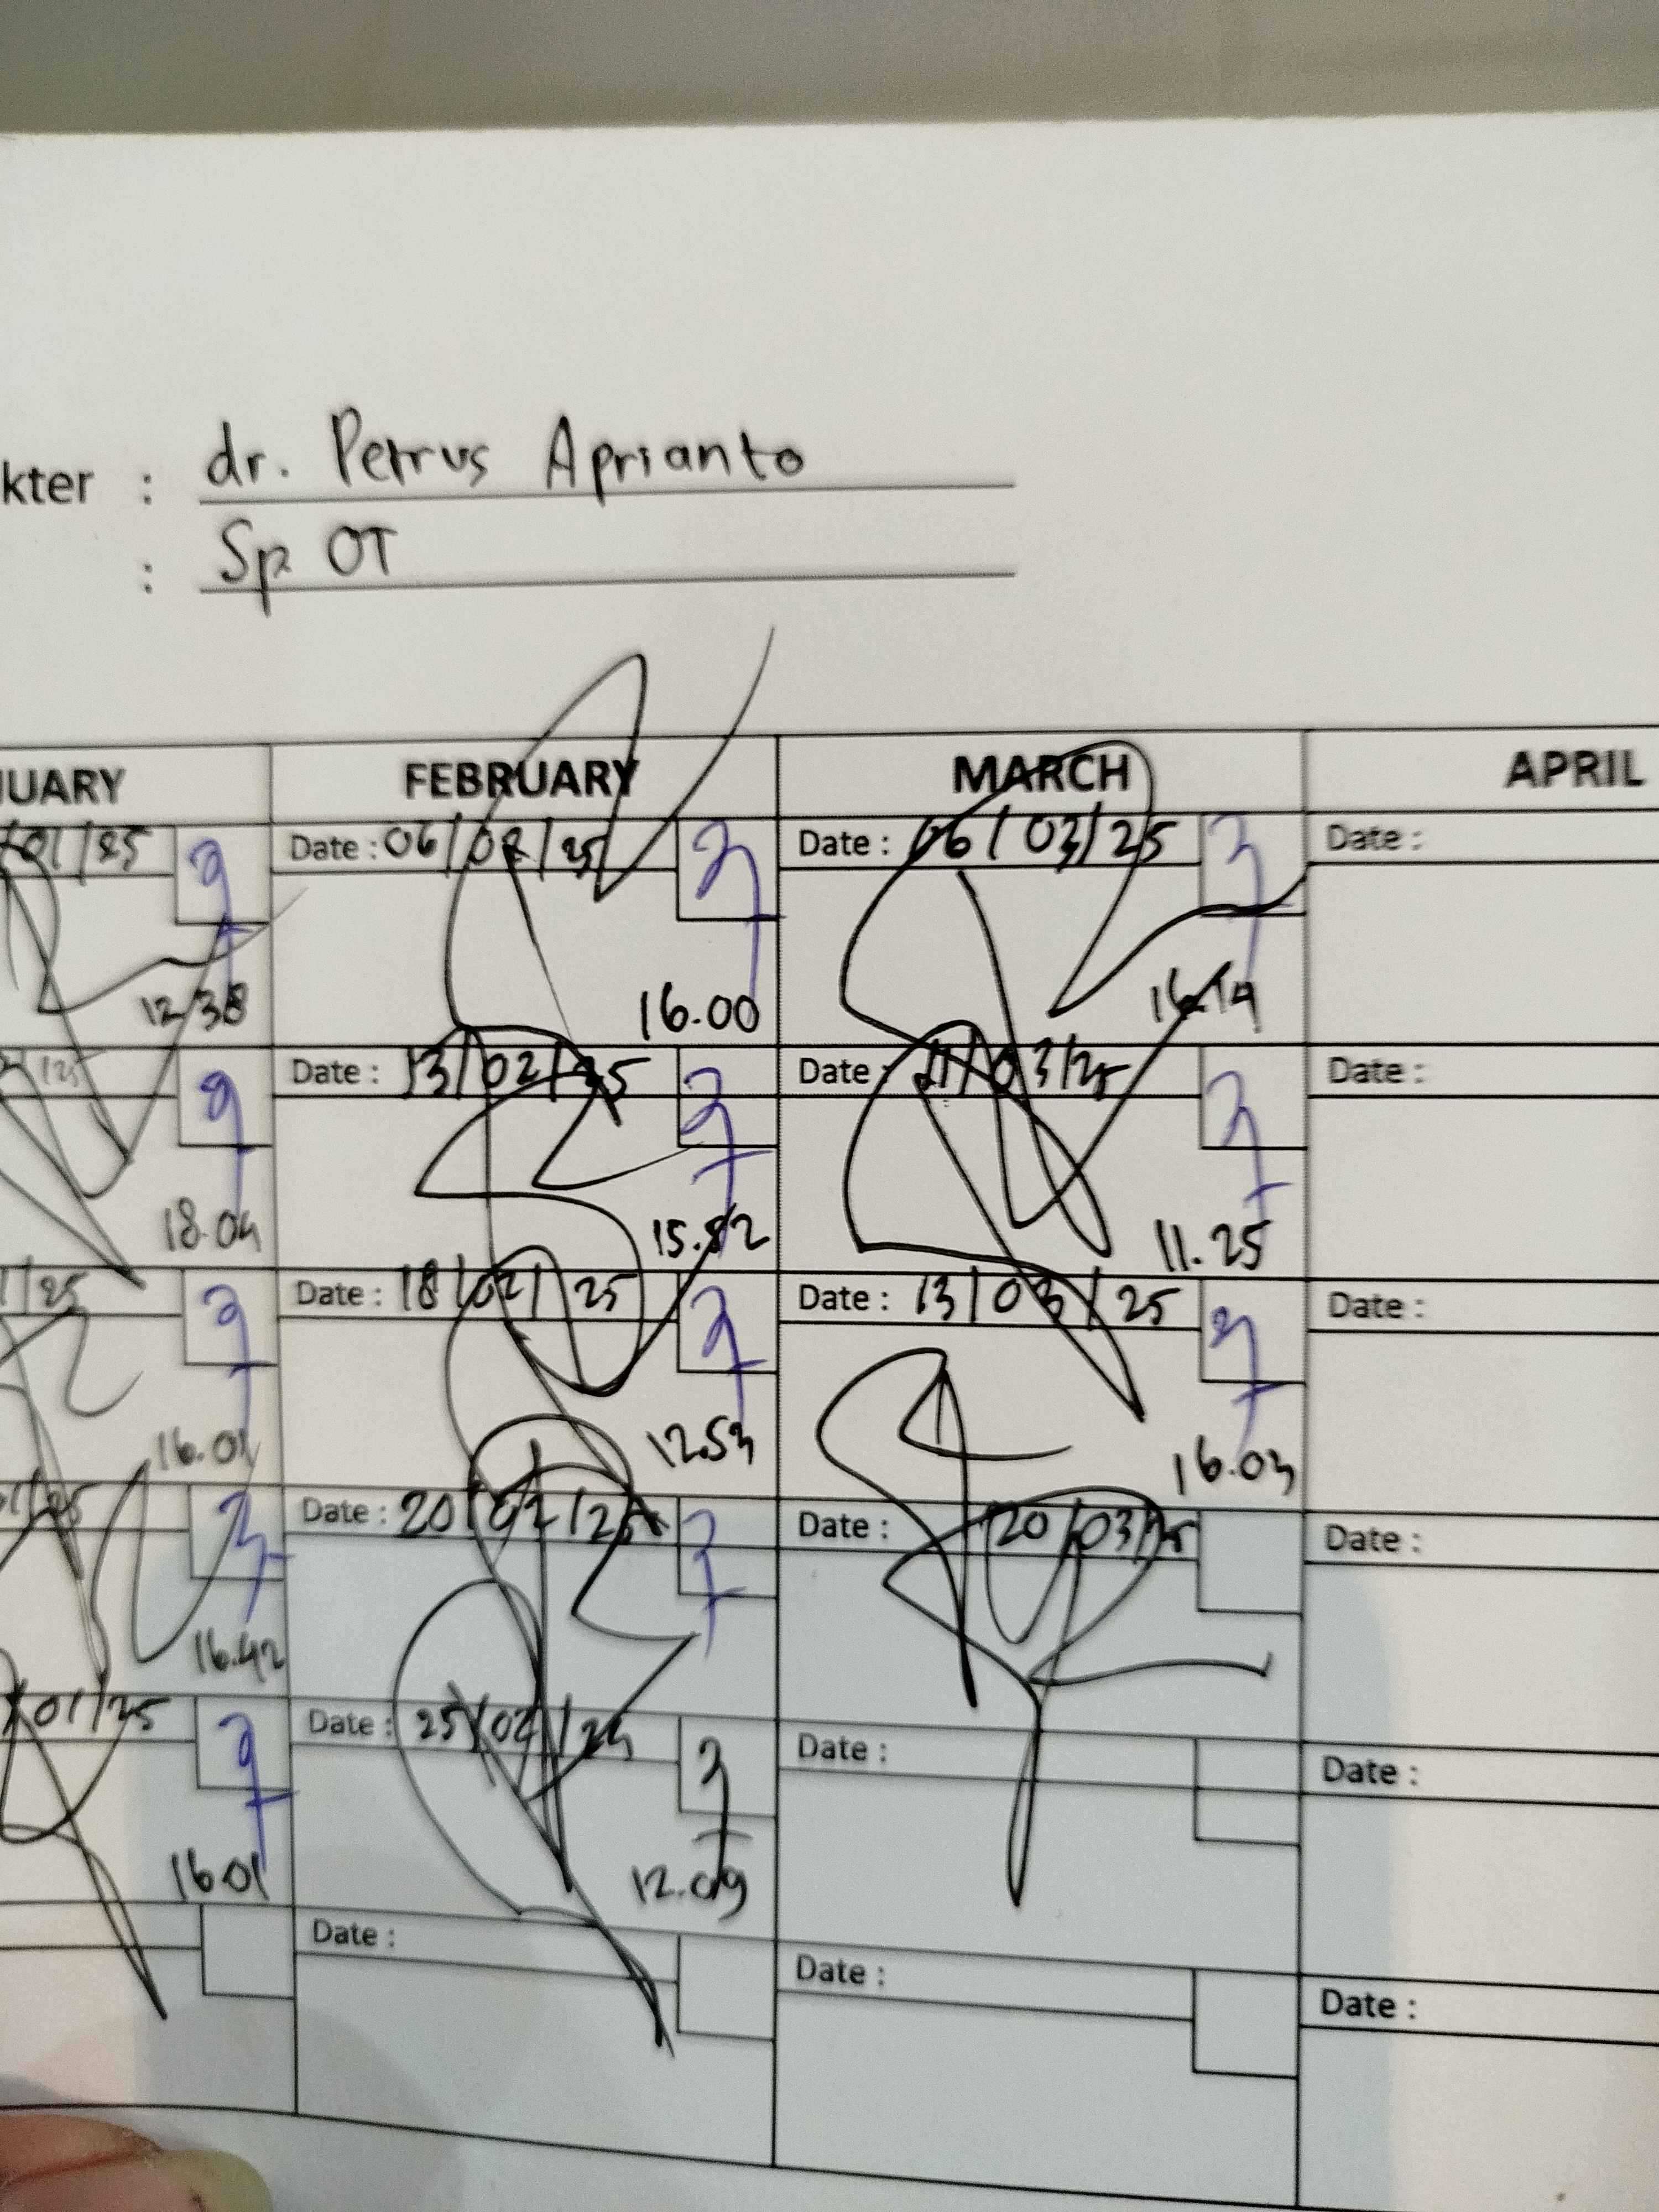 kter : dr. Petrus Aprianto
: Sp OT
UARY FEBRUARY MARCH APRIL
/01/25 Date : 06/02/25 Date : 06/03/25 Date :
12.38 16.00 16.19
Date : 13/02/25 Date : 11/03/25 Date :
18.04 15.52 11.25
/25 Date : 18/02/25 Date : 13/03/25 Date :
16.01 12.53 16.03
/25 Date : 20/02/25 Date : 20/03/25 Date :
16.42
/01/25 Date : 25/02/25 Date : Date :
16.01 12.09
Date : Date : Date :